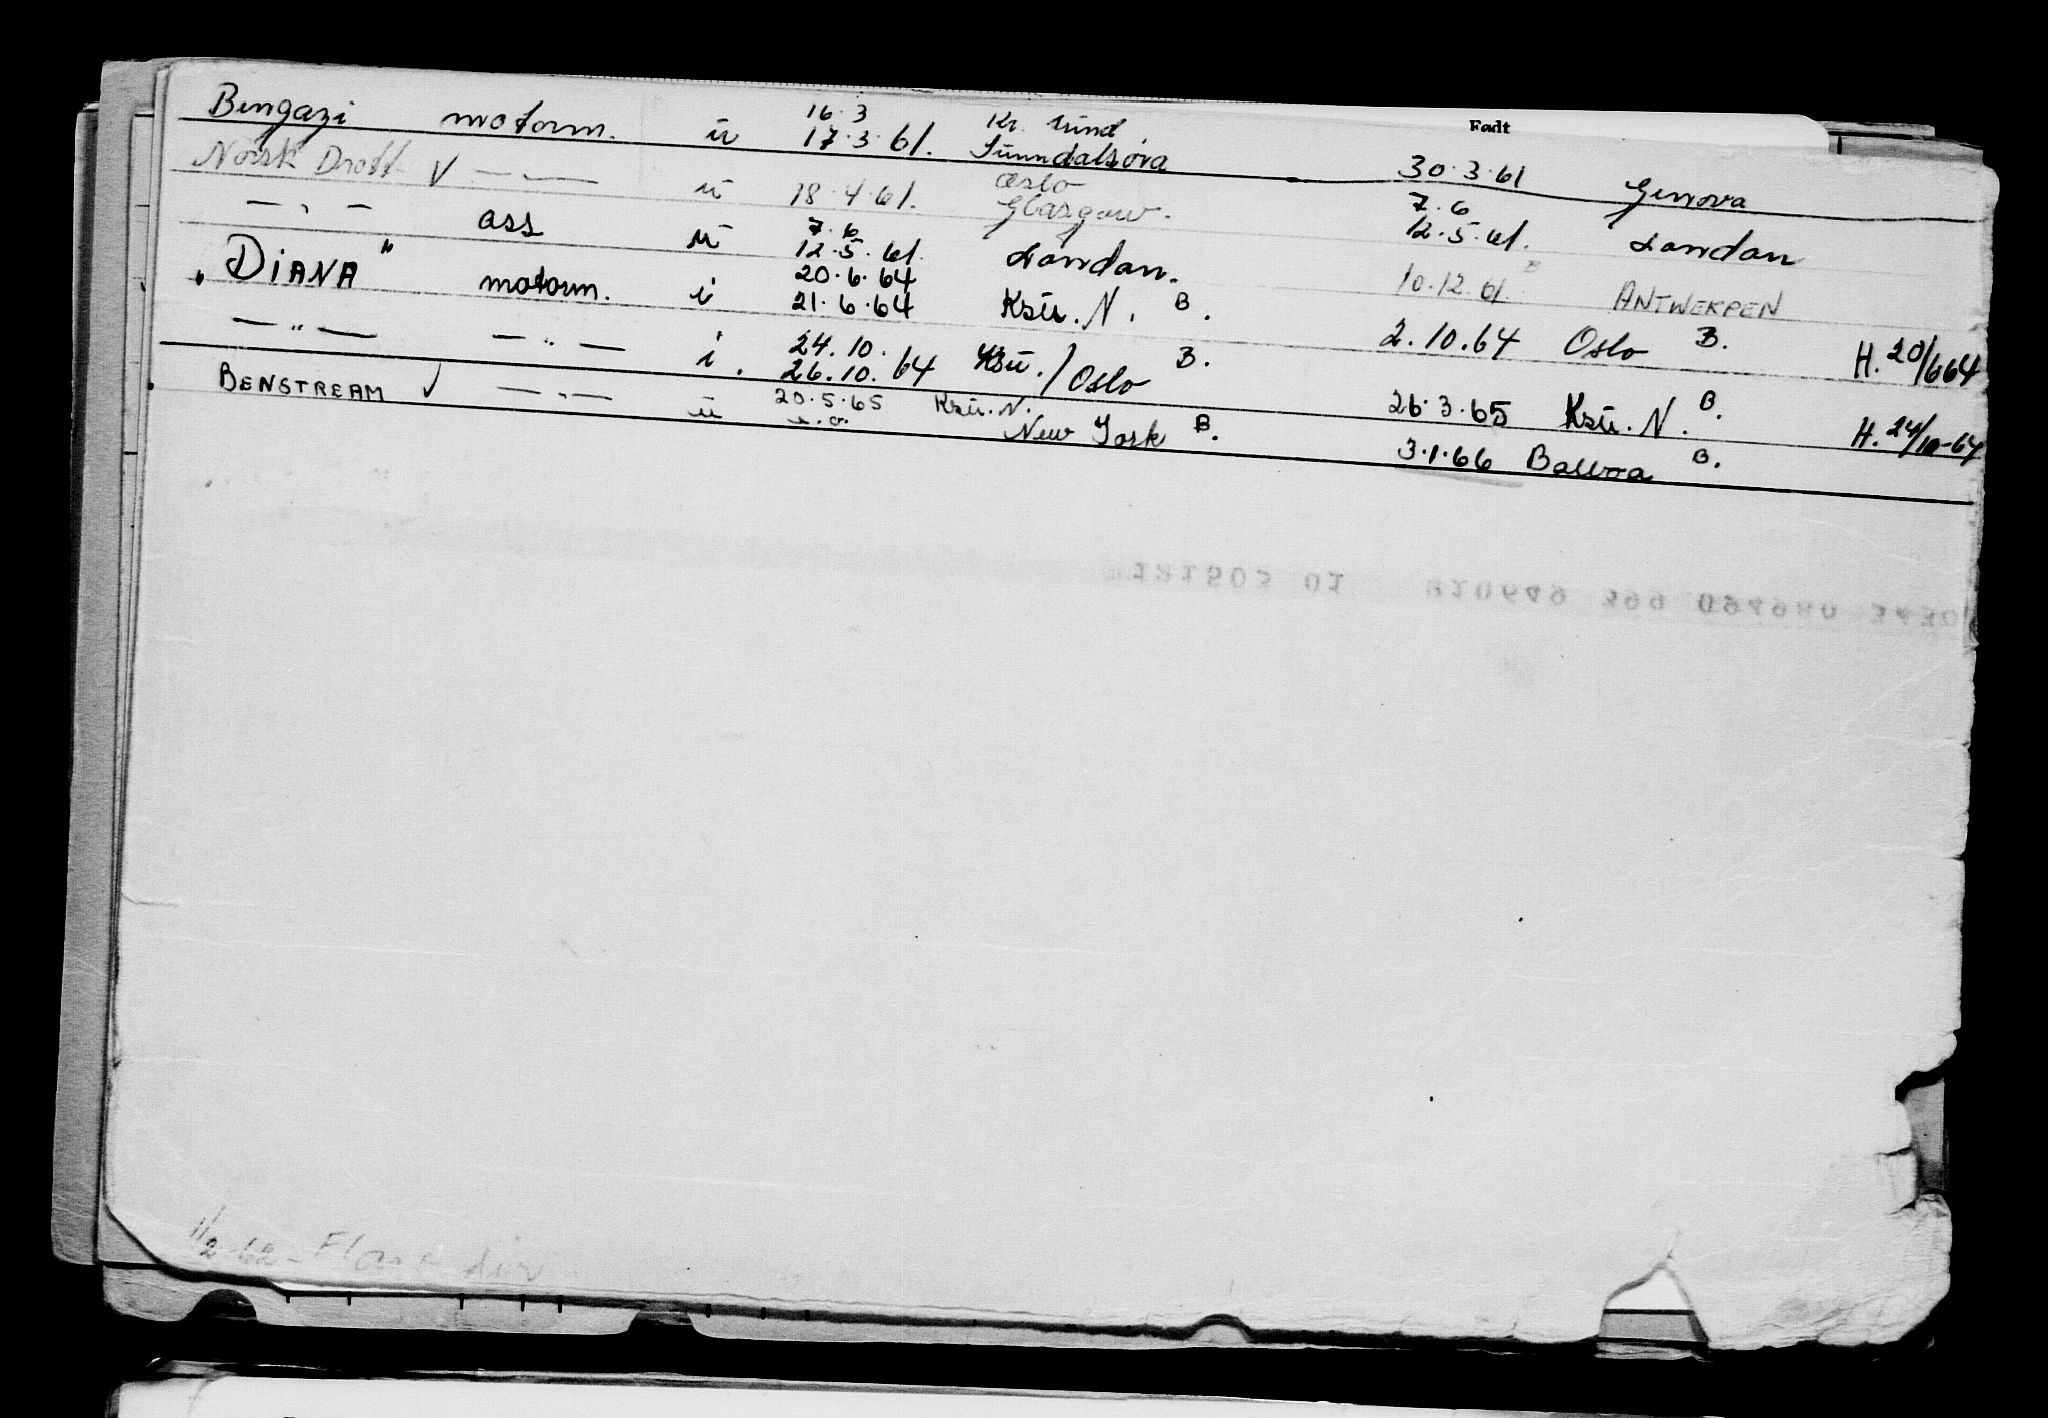 Født
Bengazi motorm. u 16.3 17.3.61. Kr. sund Sunndalsøra 30.3.61 Genova
Norsk Drott V — " — u 18.4.61. Oslo Glasgow. 7.6 12.5.61. London
— " — ass u 7.6 12.5.61. London. 10.12.61. B ANTWERPEN
"DIANA" motorm. i 20.6.64 21.6.64 Ksu. N. B. 2.10.64 Oslo B. H. 20/6 64
— " — — " — i. 24.10. 26.10.64 Ksu./Oslo B. 26.3.65 Ksu. N. B. H. 24/10-64
BENSTREAM V — " — u 20.5.65 Ksu. N. New York B. 3.1.66 Balboa B.
121503 01 810649 399 094980
1/2 62 -